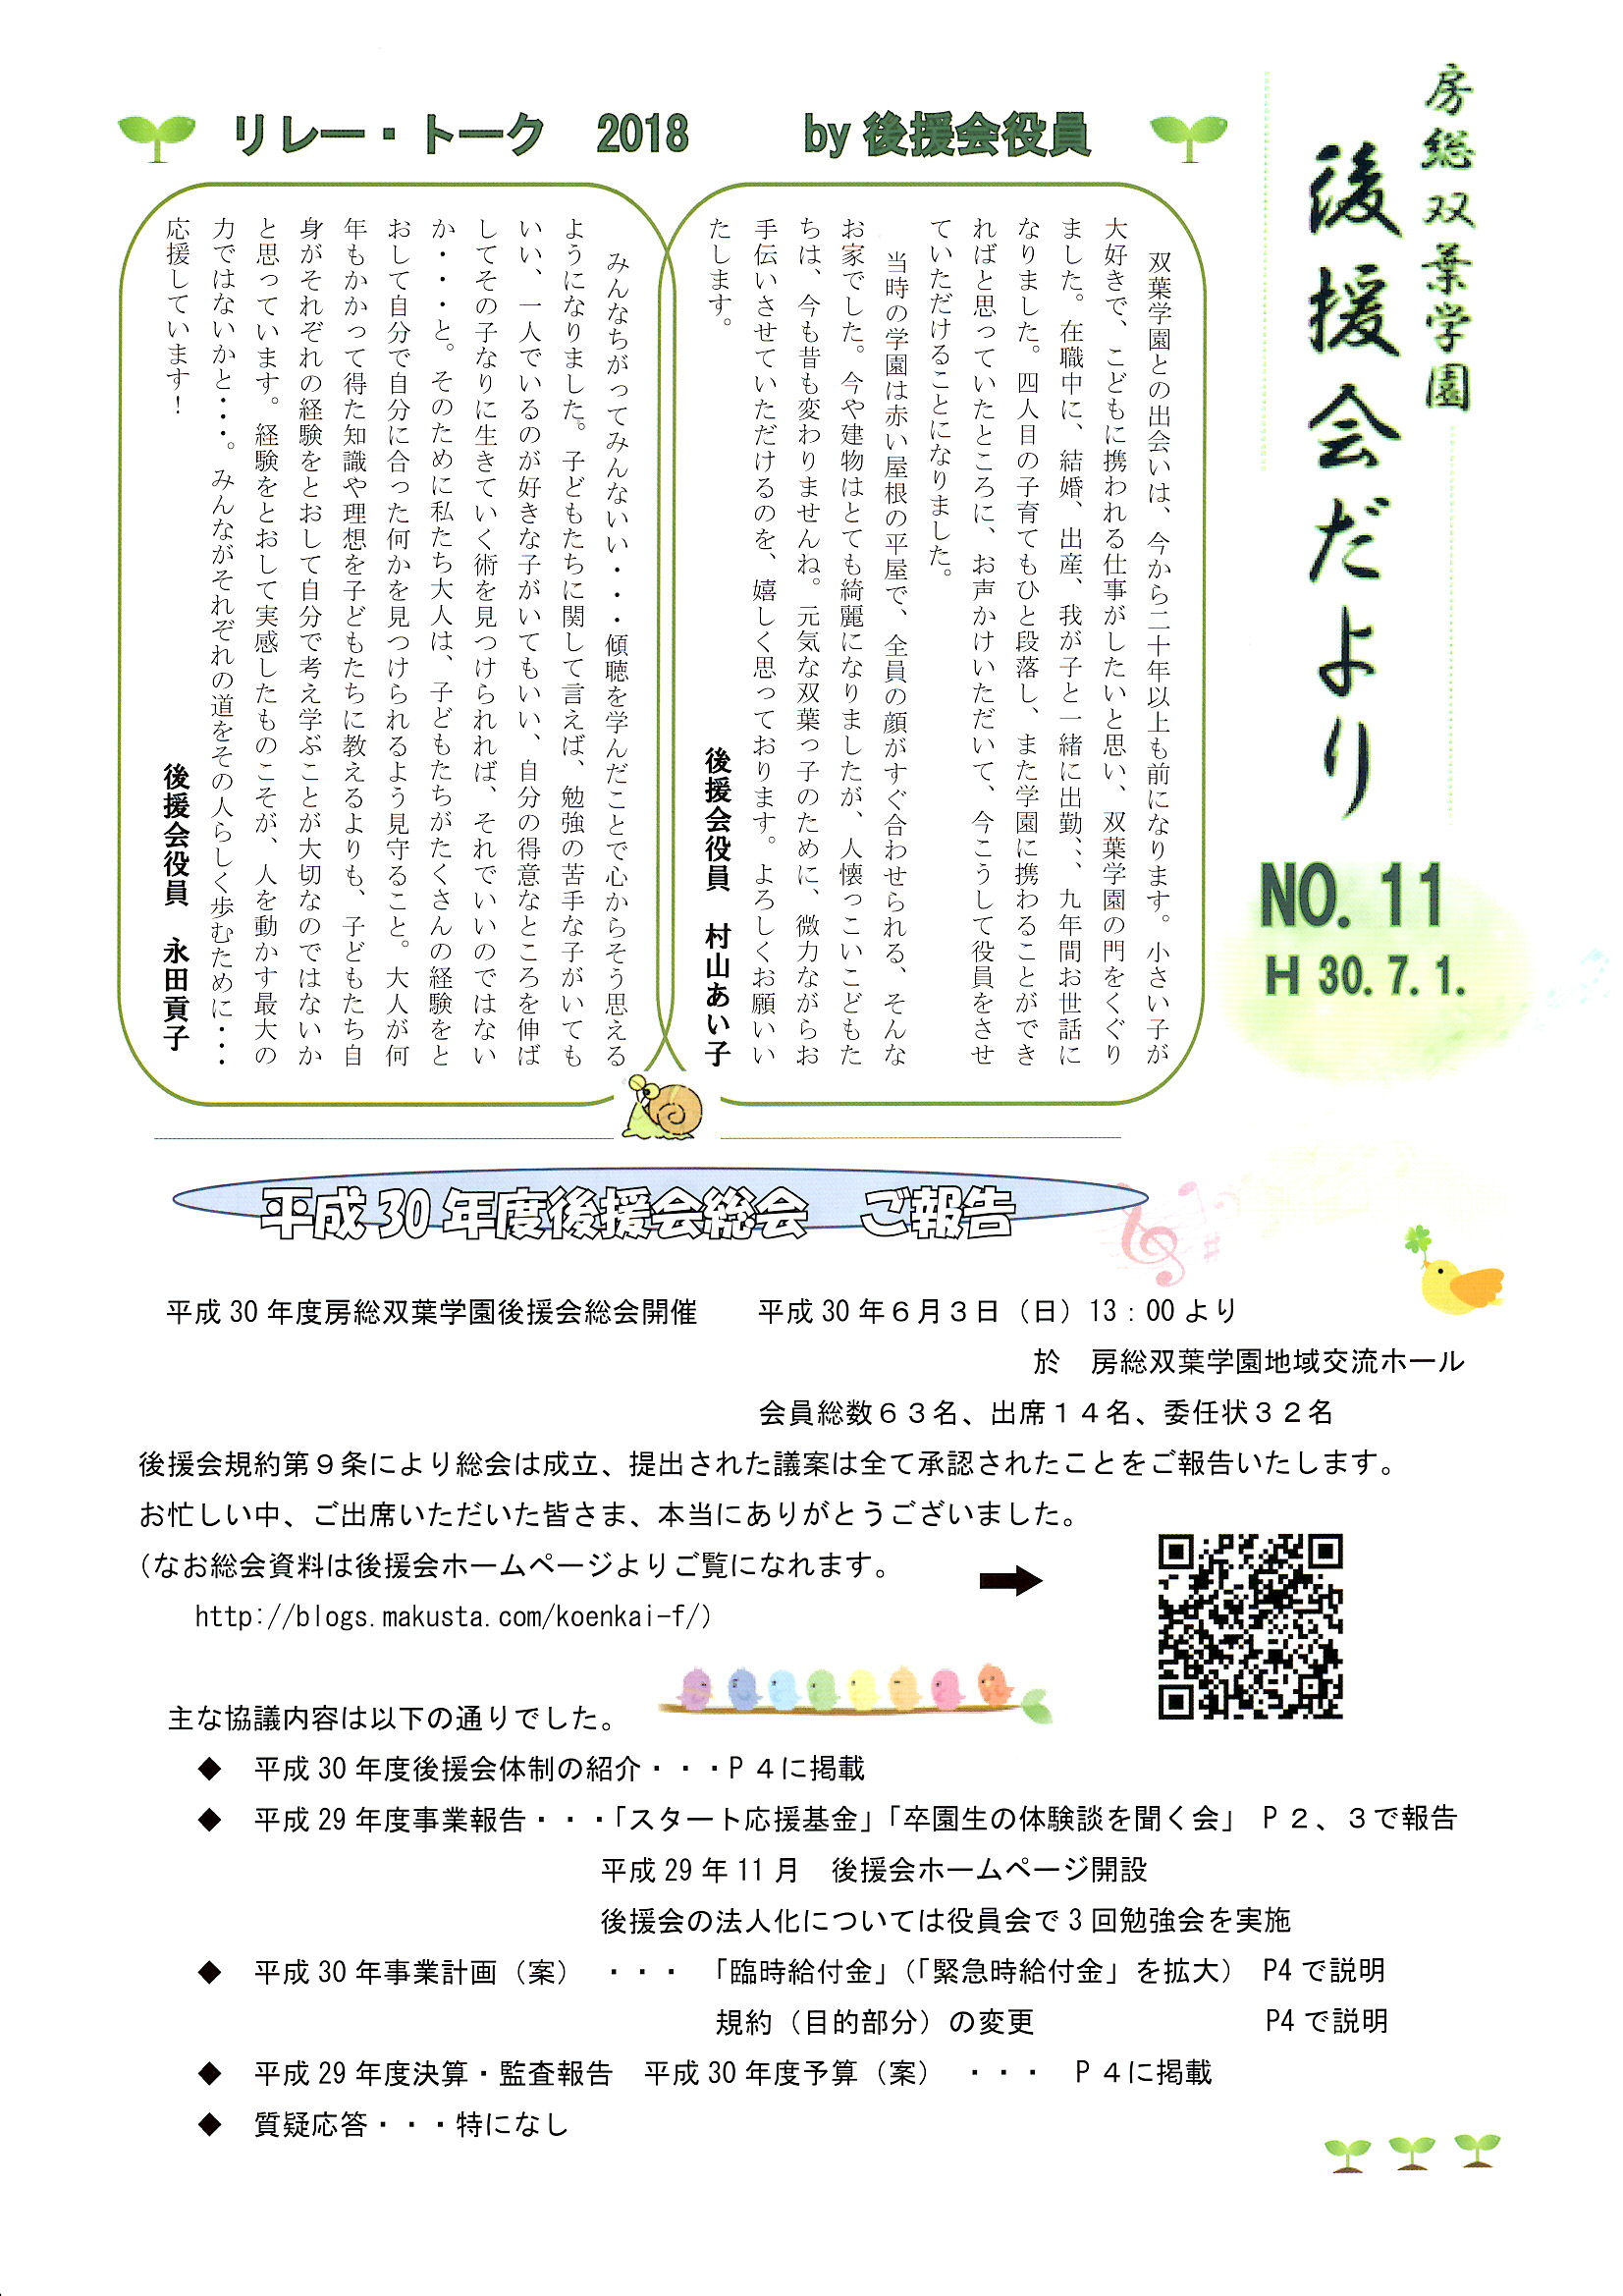 房総双葉学園
後援会だより
NO. 11
H 30. 7. 1.
リレー・トーク 2018 by 後援会役員
双葉学園との出会いは、今から二十年以上も前になります。小さい子が
大好きで、こどもに携われる仕事がしたいと思い、双葉学園の門をくぐり
ました。在職中に、結婚、出産、我が子と一緒に出勤、、、九年間お世話に
なりました。四人目の子育てもひと段落し、また学園に携わることができ
ればと思っていたところに、お声かけいただいて、今こうして役員をさせ
ていただけることになりました。
当時の学園は赤い屋根の平屋で、全員の顔がすぐ合わせられる、そんな
お家でした。今や建物はとても綺麗になりましたが、人懐っこいこどもた
ちは、今も昔も変わりませんね。元気な双葉っ子のために、微力ながらお
手伝いさせていただけるのを、嬉しく思っております。よろしくお願いい
たします。
後援会役員 村山あい子
みんなちがってみんないい・・・傾聴を学んだことで心からそう思える
ようになりました。子どもたちに関して言えば、勉強の苦手な子がいても
いい、一人でいるのが好きな子がいてもいい、自分の得意なところを伸ば
してその子なりに生きていく術を見つけられれば、それでいいのではない
か・・・と。そのために私たち大人は、子どもたちがたくさんの経験をと
おして自分で自分に合った何かを見つけられるよう見守ること。大人が何
年もかかって得た知識や理想を子どもたちに教えるよりも、子どもたち自
身がそれぞれの経験をとおして自分で考え学ぶことが大切なのではないか
と思っています。経験をとおして実感したものこそが、人を動かす最大の
力ではないかと・・・。みんながそれぞれの道をその人らしく歩むために・・・
応援しています！
後援会役員 永田貢子
平成30年度後援会総会 ご報告
平成 30 年度房総双葉学園後援会総会開催 平成 30 年６月３日（日）13：00 より
於 房総双葉学園地域交流ホール
会員総数６３名、出席１４名、委任状３２名
後援会規約第９条により総会は成立、提出された議案は全て承認されたことをご報告いたします。
お忙しい中、ご出席いただいた皆さま、本当にありがとうございました。
（なお総会資料は後援会ホームページよりご覧になれます。
http://blogs.makusta.com/koenkai-f/）
主な協議内容は以下の通りでした。
◆ 平成 30 年度後援会体制の紹介・・・P４に掲載
◆ 平成 29 年度事業報告・・・「スタート応援基金」「卒園生の体験談を聞く会」 P２、３で報告
平成 29 年 11 月 後援会ホームページ開設
後援会の法人化については役員会で 3 回勉強会を実施
◆ 平成 30 年事業計画（案） ・・・ 「臨時給付金」（「緊急時給付金」を拡大） P4 で説明
規約（目的部分）の変更 P4 で説明
◆ 平成 29 年度決算・監査報告 平成 30 年度予算（案） ・・・ P４に掲載
◆ 質疑応答・・・特になし